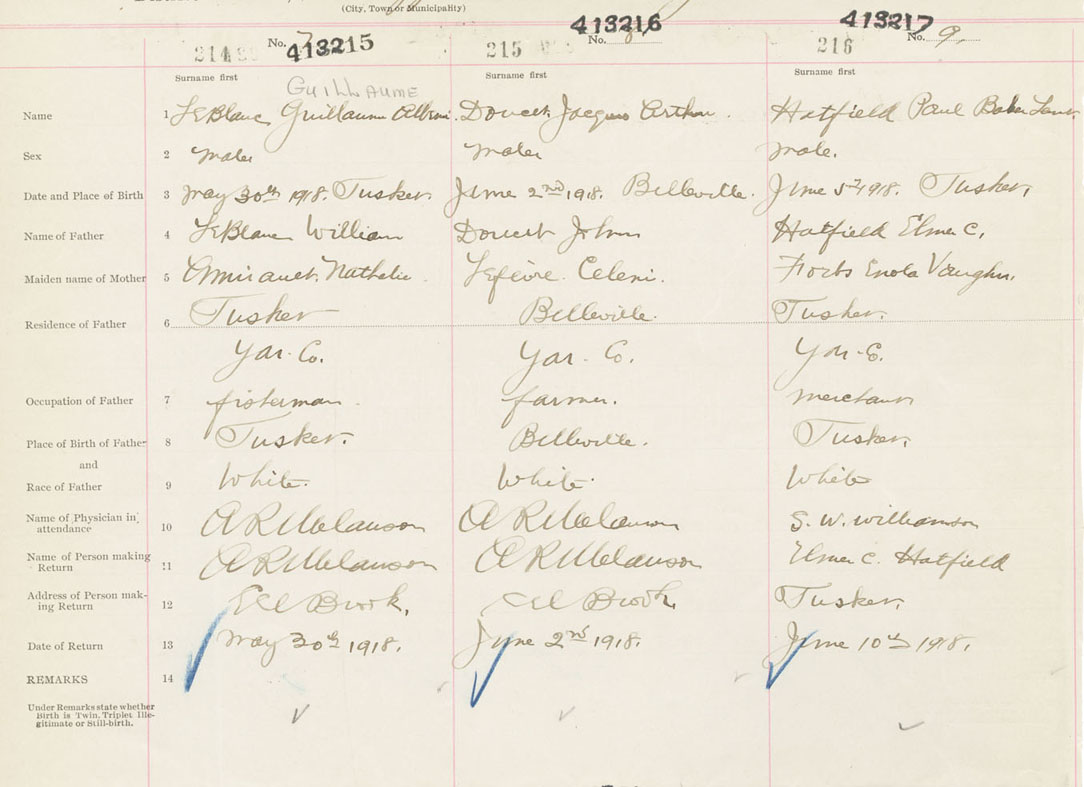 (City, Town or Municipality)
413215 413216 413217
214 No. 7 215 No. 8, 216 No. 9,
Surname first Surname first Surname first
GUILLAUME
Name 1 LeBlanc Guillaume Doucet Jacques Arthur. Hatfield Paul Baker
Sex 2 male male male.
Date and Place of Birth 3 May 30th 1918. Tusket. June 2nd 1918. Belleville. June 5th 1918. Tusket,
Name of Father 4 LeBlanc William Doucet John Hatfield Elmer C.
Maiden name of Mother 5 Amirault. Nathalie. Celeni. Forbs Enola Vaughn.
Residence of Father 6 Tusket Belleville. Tusket.
Yar. Co. Yar. Co. Yar. Co.
Occupation of Father 7 fisherman. farmer. merchant
Place of Birth of Father 8 Tusket. Belleville. Tusket,
and
Race of Father 9 White. White. White
Name of Physician in attendance 10 A R Melanson A R Melanson S. W. Williamson
Name of Person making Return 11 A R Melanson A R Melanson Elmer C. Hatfield
Address of Person making Return 12 Eel Brook, Eel Brook, Tusket,
Date of Return 13 May 30th 1918. June 2nd 1918. June 10th 1918.
REMARKS 14
Under Remarks state whether
Birth is Twin, Triplet Ille-
gitimate or Still-birth.